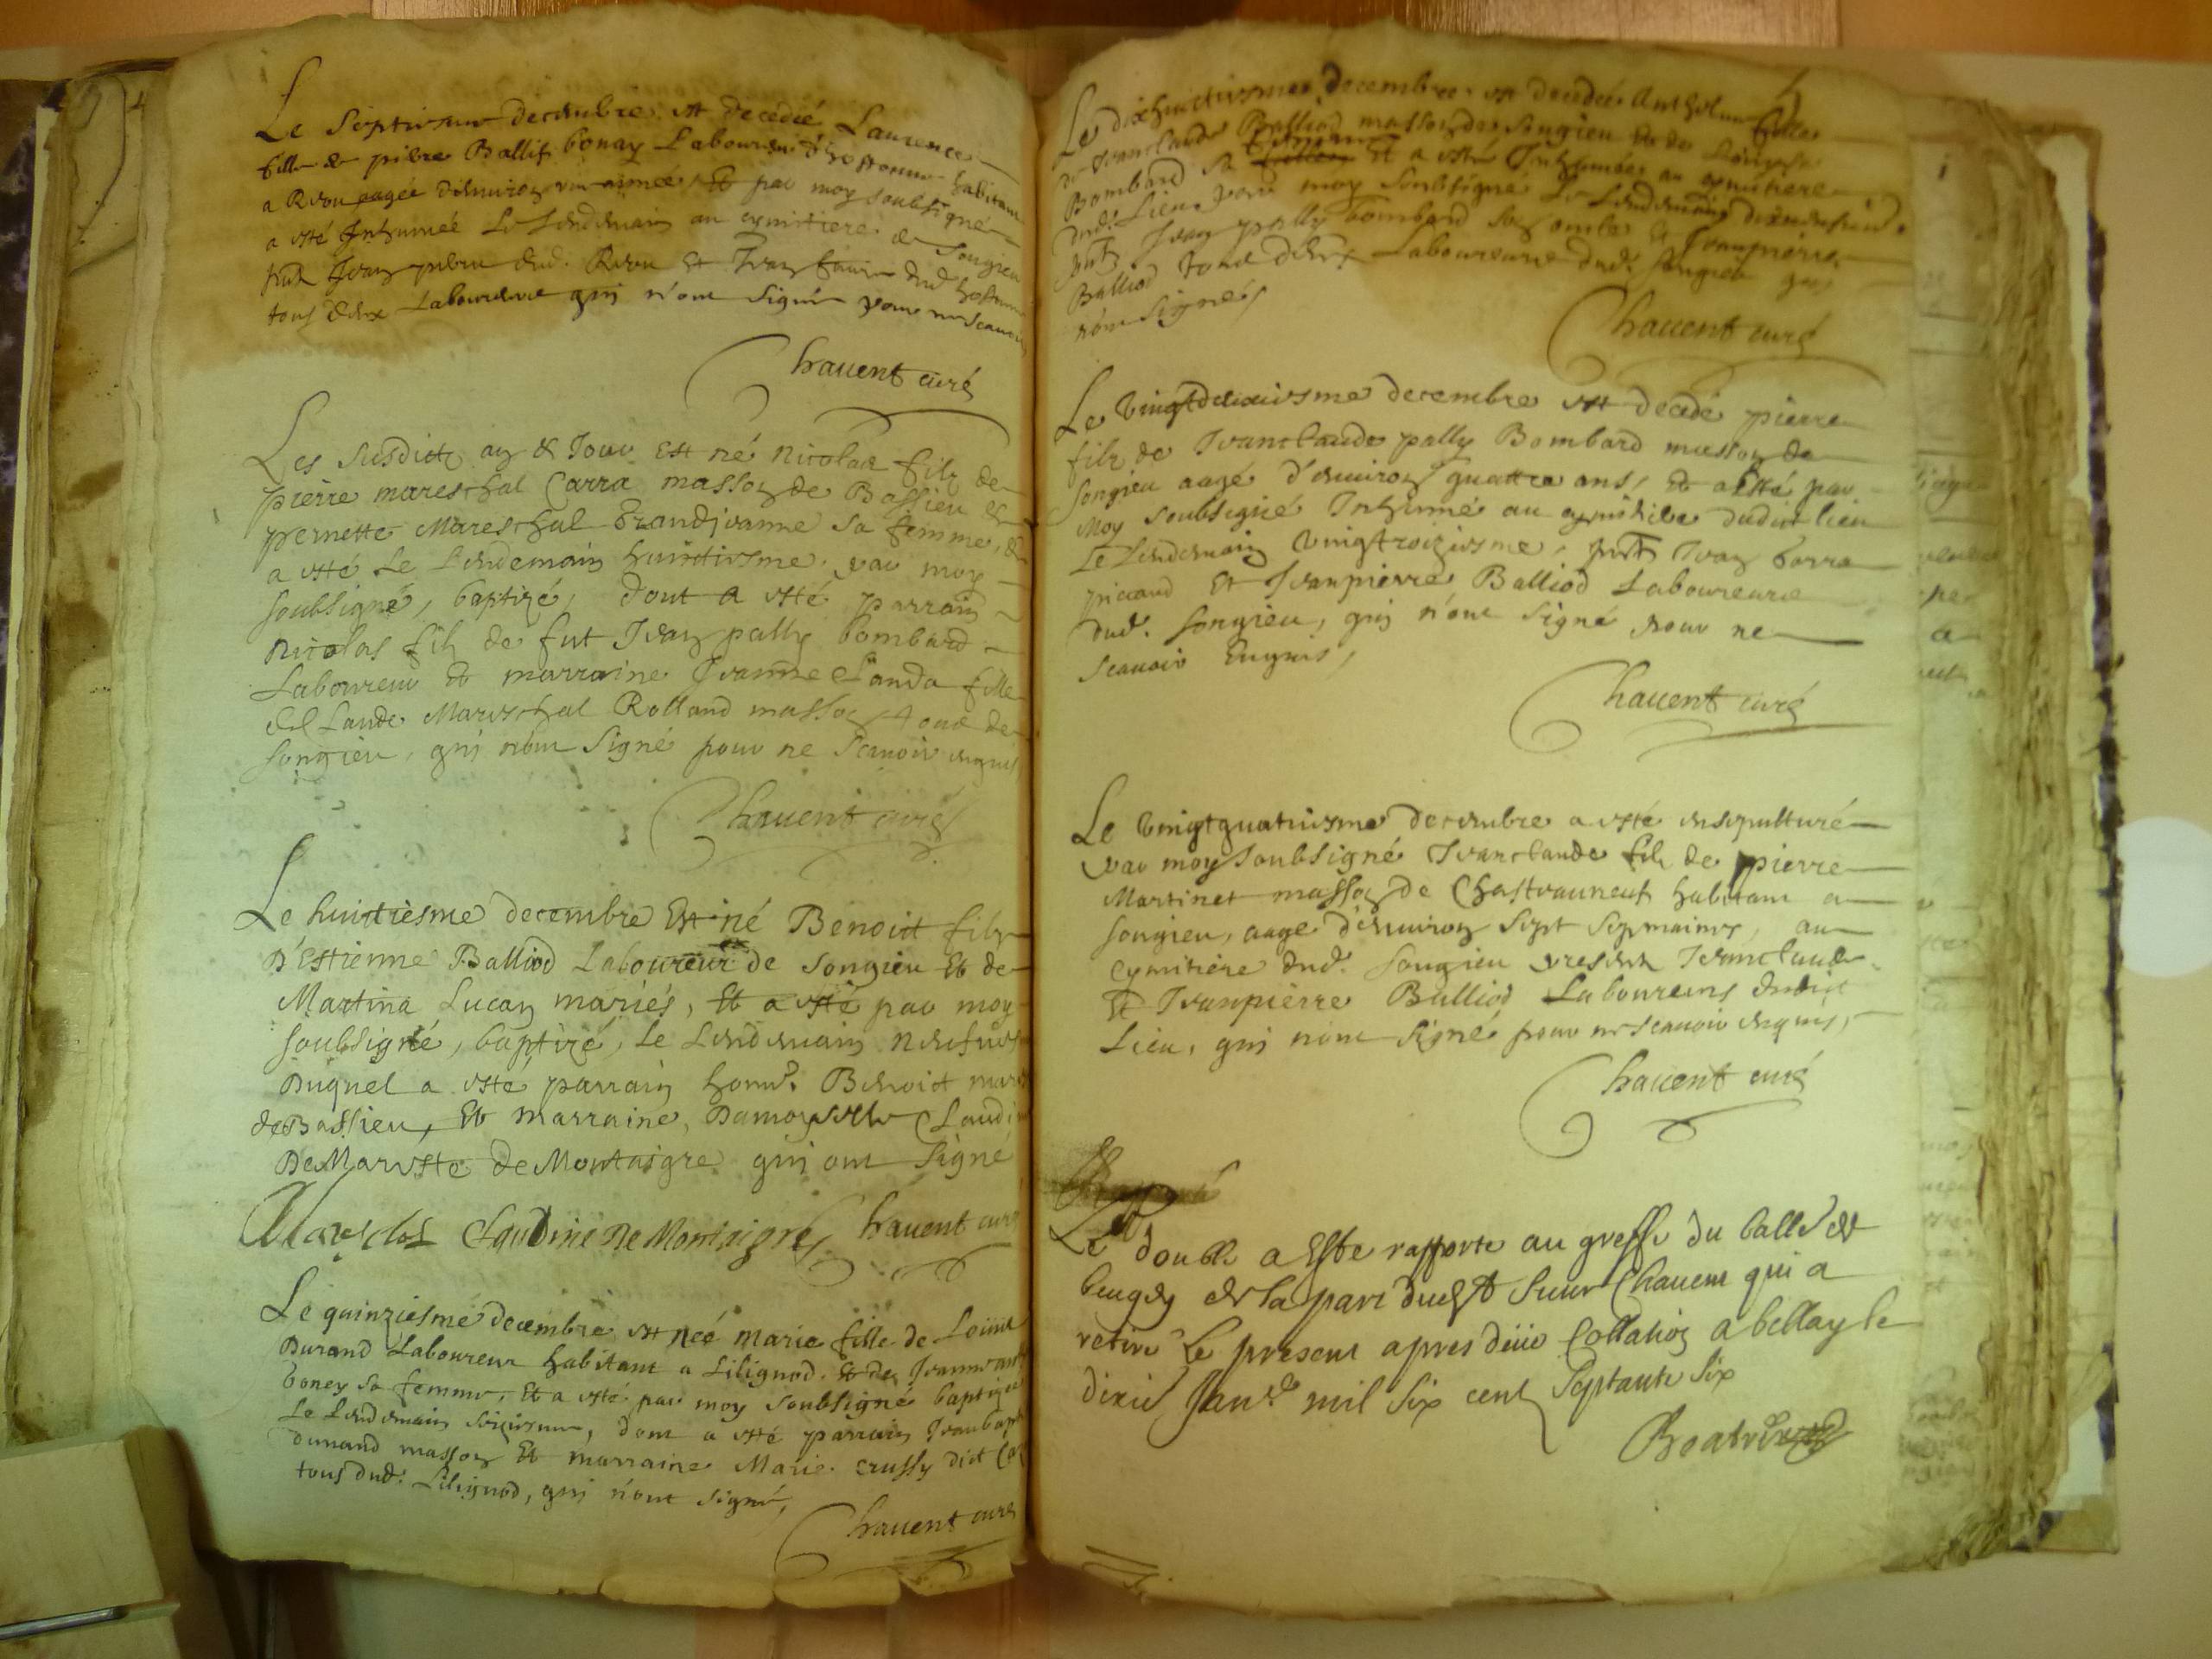 Le septiesme decembre est decedée Laurence
fille de pierre Ballif bonay Laboureur d'hostonne habitant
a Rvou aagée d'environ une année Et par moy soubsigné
a esté Inhumée Le Lendemain au cymitiere de Songieu
pnts Jean pierre dud. Rvou Et Jean dud hostonne
tous deux Laboureurs qui n'ont signé pour ne scavoir
Chavent curé
Les susdicts an & Jour Est né Nicolas filz de
pierre mareschal Carra masson de Bassieu et
pernette Mareschal Grandjeanne sa femme, Et
a esté Le Lendemain huictiesme, par moy
soubsigné, baptizé, dont a esté parrain
Nicolas filz de fut Jean pally bombard
Laboureur Et marraine Jeanne Clauda fille
de Claude Mareschal Rolland masson tous de
songieu, qui n'ont signé pour ne scavoir enquis
Chavent curé
Le huictiesme decembre Est né Benoict filz
D'Estienne Balliod Laboureur de songieu Et de
Martina Lucan mariés, Et a esté par moy
soubsigné, baptizé, le Lendemain neufvies
Duquel a esté parrain honn. Benoict mare
de Bassieu, Et marraine, Damoyselle Claudi
De Mareste de Montaigre qui ont signé
Mareschal Claudine De Montaigre Chavent curé
Le quinziesme decembre est neé marie fille de Loüis
Durand Laboureur habitant a Lilignod. Et de Jeanne
boney sa femme, Et a esté par moy soubsigné baptizée
Le Lendemain seiziesme, dont a esté parrain Jeanbapt
dunand masson Et marraine Marie crussy dict
tous dud. Lilignod, qui n'ont signé,
Chavent curé
Le dixhuictiesme decembre est decedée Antholme fille
de Jeanclaude Balliod masson de songieu Et de
Bombard sa femme Et a esté Inhumée au cymitiere
dud. Lieu par moy soubsigné Le Lendemain dixneufvie.
pnts Jean pally bombard son oncle Et Jeanpierre
Balliod tous deux Laboureurs dud. songieu qui
n'ont signés
Chavent curé
Le vingtdeuxiesme decembre est decedé pierre
filz de Jeanclaude pally Bombard masson de
songieu aagé d'environ quattre ans, Et a esté par
Moy soubsigné Inhumé au cymitiere dudict lieu
Le Lendemain vingttroiziesme, pnts Jean borra
piccand Et Jeanpierre Balliod Laboureurs
dud. songieu, qui n'ont signé pour ne
scavoir Enquis,
Chavent curé
Le vingtquatriesme decembre a esté ensepulturé
par moy soubsigné Jeanclaude filz de pierre
Martinet masson de Chasteauneuf habitant a
songieu, aagé d'environ sept sepmaines, au
Cymitiere dud. songieu presents Jeanclaude
Et Jeanpierre Balliod Laboureurs dudict
Lieu, qui n'ont signé pour ne scavoir enquis,
Chavent curé
Le double a Esté rapporté au greffe du balliage de
beugey de la part dud. Sieur Chavent qui a
retiré Le present apres deüe Collation a bellay le
dixie Janv. mil six cent Septante six